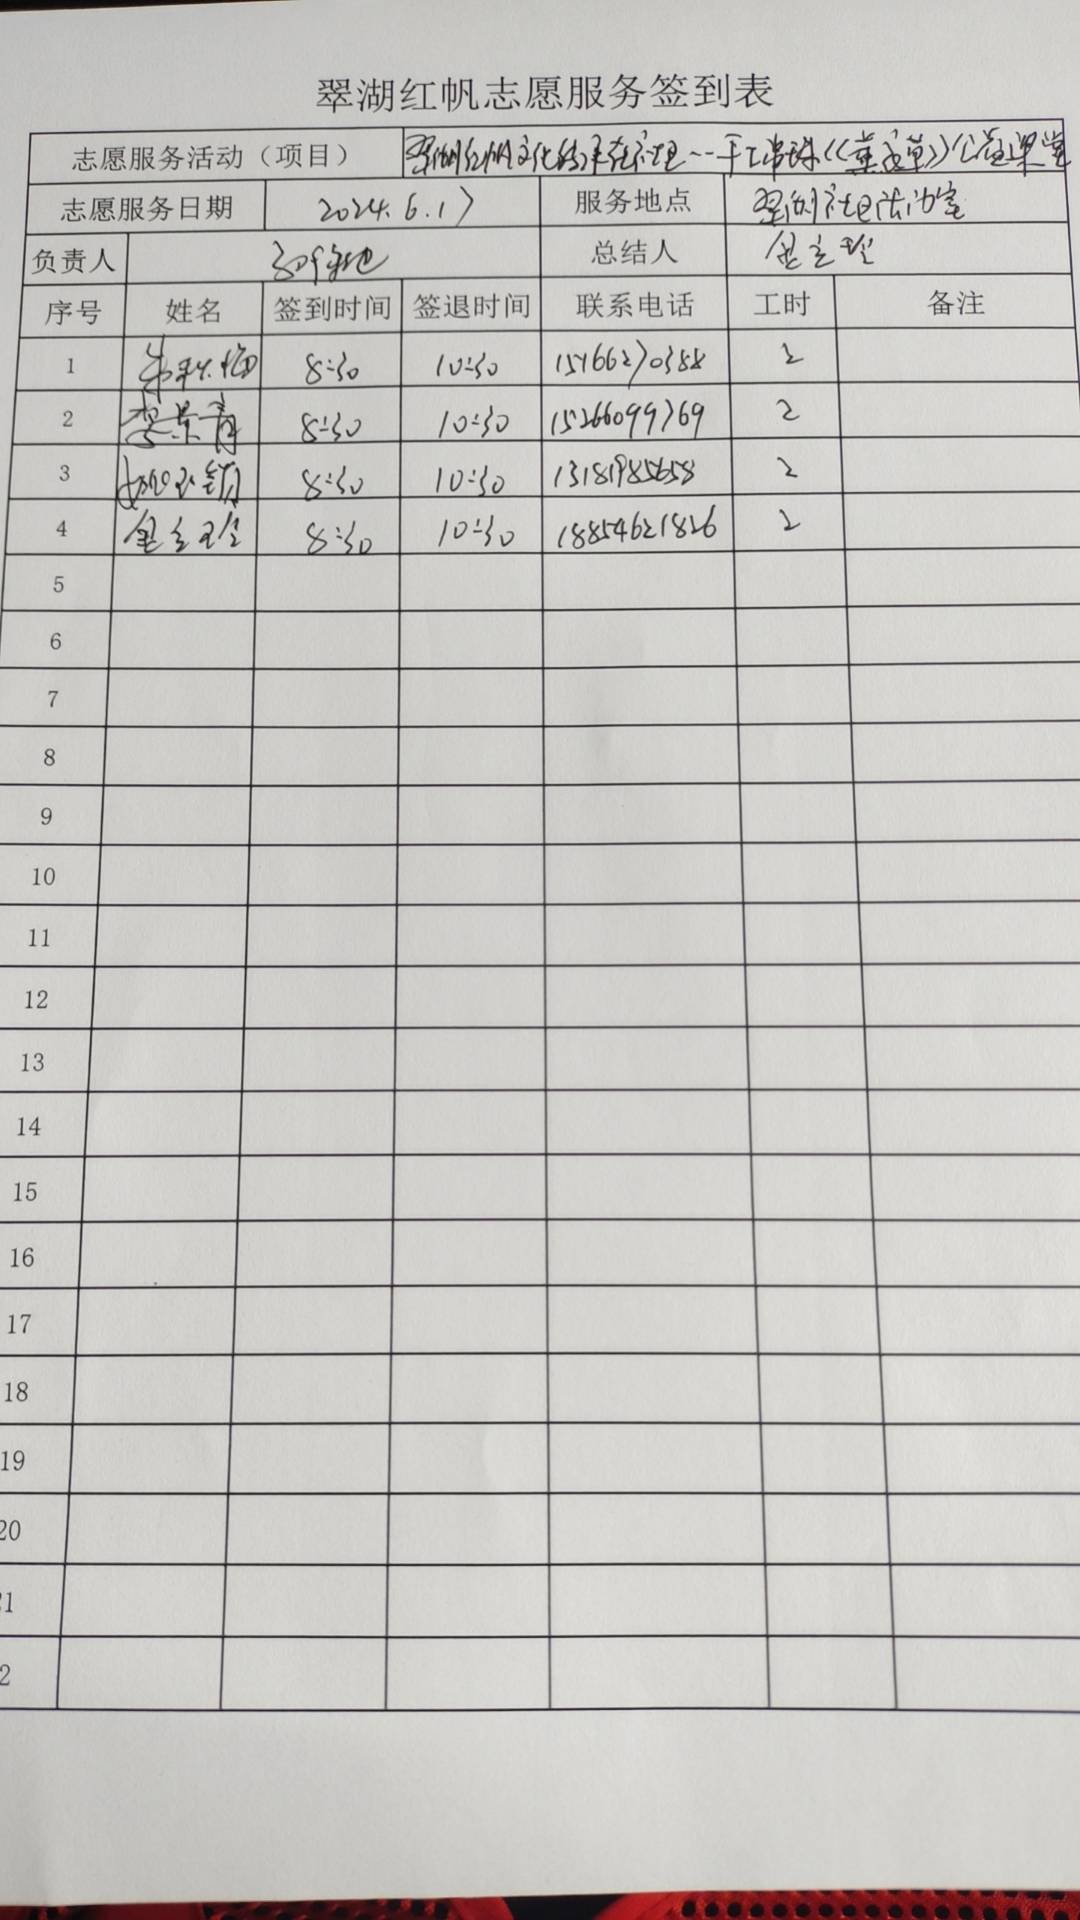 翠湖红帆志愿服务签到表
志愿服务活动（项目） 翠湖红帆文化传承在社区--手工串珠《《薰衣草》》公益课堂
志愿服务日期 2024.6.17 服务地点 翠湖社区活动室
负责人 总结人
序号 姓名 签到时间 签退时间 联系电话 工时 备注
1 朱秋梅 8:30 10:30 15166270388 2
2 李景青 8:30 10:30 15266099769 2
3 8:30 10:30 13181985658 2
4 8:30 10:30 18854621826 2
5
6
7
8
9
10
11
12
13
14
15
16
17
18
19
20
21
2